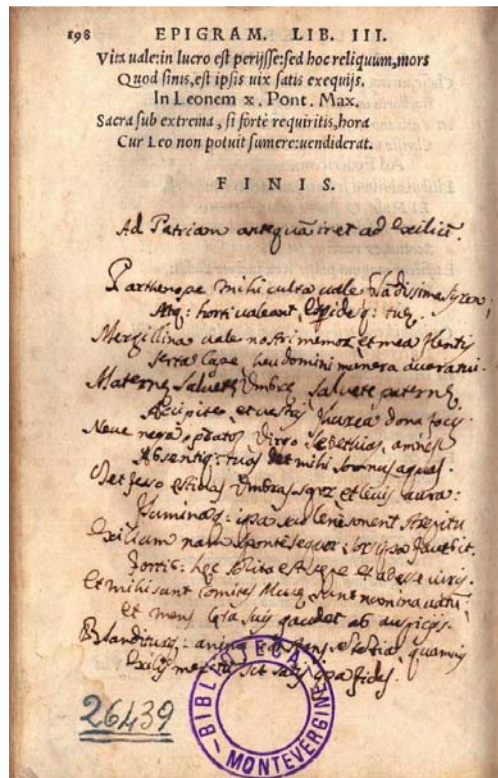 198 EPIGRAM. LIB. III.
Vita uale: in lucro est perijsse: sed hoc reliquum, mors
Quod sinis, est ipsis uix satis exequijs.
In Leonem x. Pont. Max.
Sacra sub extrema, si forte requiritis, hora
Cur Leo non potuit sumere: uendiderat.
FINIS.
Ad Patriam antequã iret ad exiliũ.
Parthenope mihi culta uale blãdissima Syren,
Atq: horti ualeant, tuę.
Mergillina uale nostri memor, et mea flentis
Serta Cape, heu domini munera auara tui.
Maternę Saluete Vmbrę, Saluete paternę,
Accipite, et uestris thurea dona focis.
Neue nega optatos Virgo Sebethias, amnes
Absentiq: tuas det mihi somnus aquas.
Det fesso estiuas Vmbras sopor et leuis aura:
Fluminaq: ipsa suo lene sonent strepitu
Exilium nam sponte sequor: sors ipsa fauebit.
Fortib: hęc solita est sępe et adesse uiris.
Et mihi sunt Comites Musę, sunt numina uatũ,
Et mens lęta suis gaudet ab auspicijs.
Blanditurq: animo quamuis
Exilij meritũ sit satis ipsa fides.
26439
BIBLIOTECA - MONTEVERGINE -